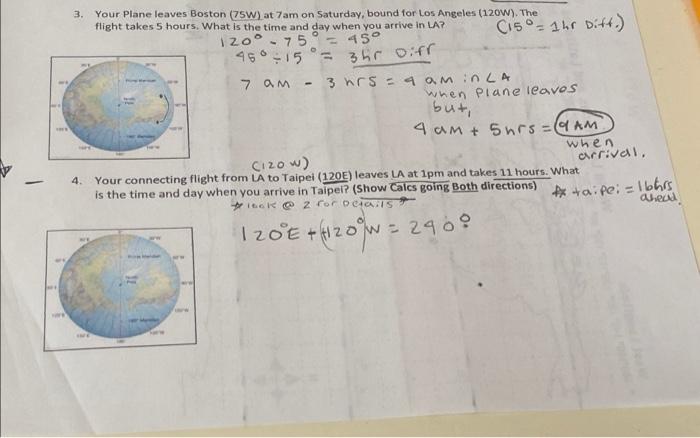 3. Your Plane leaves Boston (75W) at 7am on Saturday, bound for Los Angeles (120W). The
flight takes 5 hours. What is the time and day when you arrive in LA?
(15° = 1 hr Diff.)
120° - 75° = 45°
45° ÷ 15° = 3hr Diff
7 am - 3 hrs = 4 am in LA
when plane leaves
but,
4 am + 5 hrs = 9 AM
when
arrival.
(120 W)
4. Your connecting flight from LA to Taipei (120E) leaves LA at 1pm and takes 11 hours. What
is the time and day when you arrive in Taipei? (Show Calcs going Both directions)
taipei = 16hrs
ahead.
look @ 2 for Details
120°E + (+120°)W = 240°